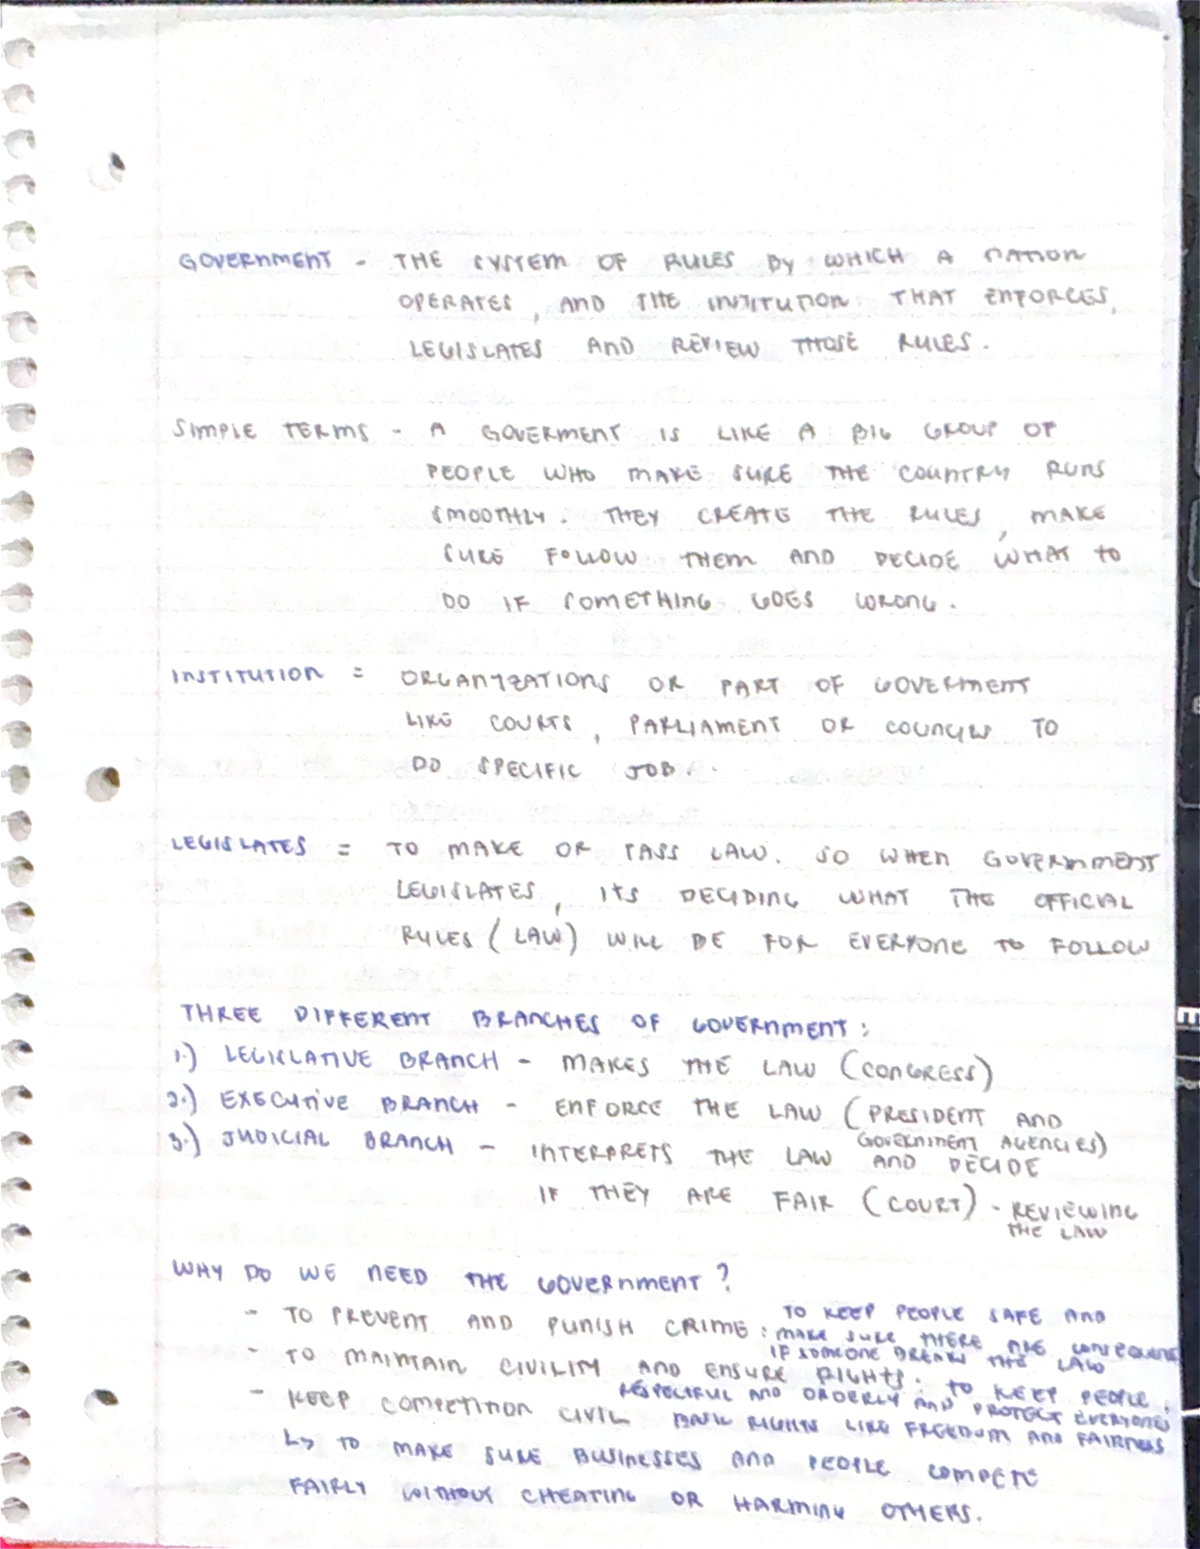 GOVERNMENT - THE SYSTEM OF RULES BY WHICH A NATION
OPERATES, AND THE INSTITUTION THAT ENFORCES,
LEGISLATES AND REVIEW THOSE RULES.
SIMPLE TERMS - A GOVERMENT IS LIKE A BIG GROUP OF
PEOPLE WHO MAKE SURE THE COUNTRY RUNS
SMOOTHLY. THEY CREATE THE RULES, MAKE
SURE FOLLOW THEM AND DECIDE WHAT TO
DO IF SOMETHING GOES WRONG.
INSTITUTION = ORGANIZATIONS OR PART OF GOVERMENT
LIKE COURTS, PARLIAMENT OR COUNCILS TO
DO SPECIFIC JOB.
LEGISLATES = TO MAKE OR PASS LAW. SO WHEN GOVERNMENT
LEGISLATES, ITS DECIDING WHAT THE OFFICIAL
RULES (LAW) WILL BE FOR EVERYONE TO FOLLOW
THREE DIFFERENT BRANCHES OF GOVERNMENT:
1.) LEGISLATIVE BRANCH - MAKES THE LAW (CONGRESS)
2.) EXECUTIVE BRANCH - ENFORCE THE LAW (PRESIDENT AND
GOVERNMENT AGENCIES)
3.) JUDICIAL BRANCH - INTERPRETS THE LAW AND DECIDE
IF THEY ARE FAIR (COURT) - REVIEWING
THE LAW
WHY DO WE NEED THE GOVERNMENT?
- TO PREVENT AND PUNISH CRIME: TO KEEP PEOPLE SAFE AND
MAKE SURE THERE ARE
IF SOMEONE BREAKS THE LAW
- TO MAINTAIN CIVILITY AND ENSURE RIGHTS. TO KEEP PEOPLE
RESPECTFUL AND ORDERLY AND PROTECT EVERYONES
BASIC RIGHTS LIKE FREEDOM AND FAIRNESS
- KEEP COMPETITION CIVIL
↳ TO MAKE SURE BUSINESSES AND PEOPLE COMPETE
FAIRLY WITHOUT CHEATING OR HARMING OTHERS.